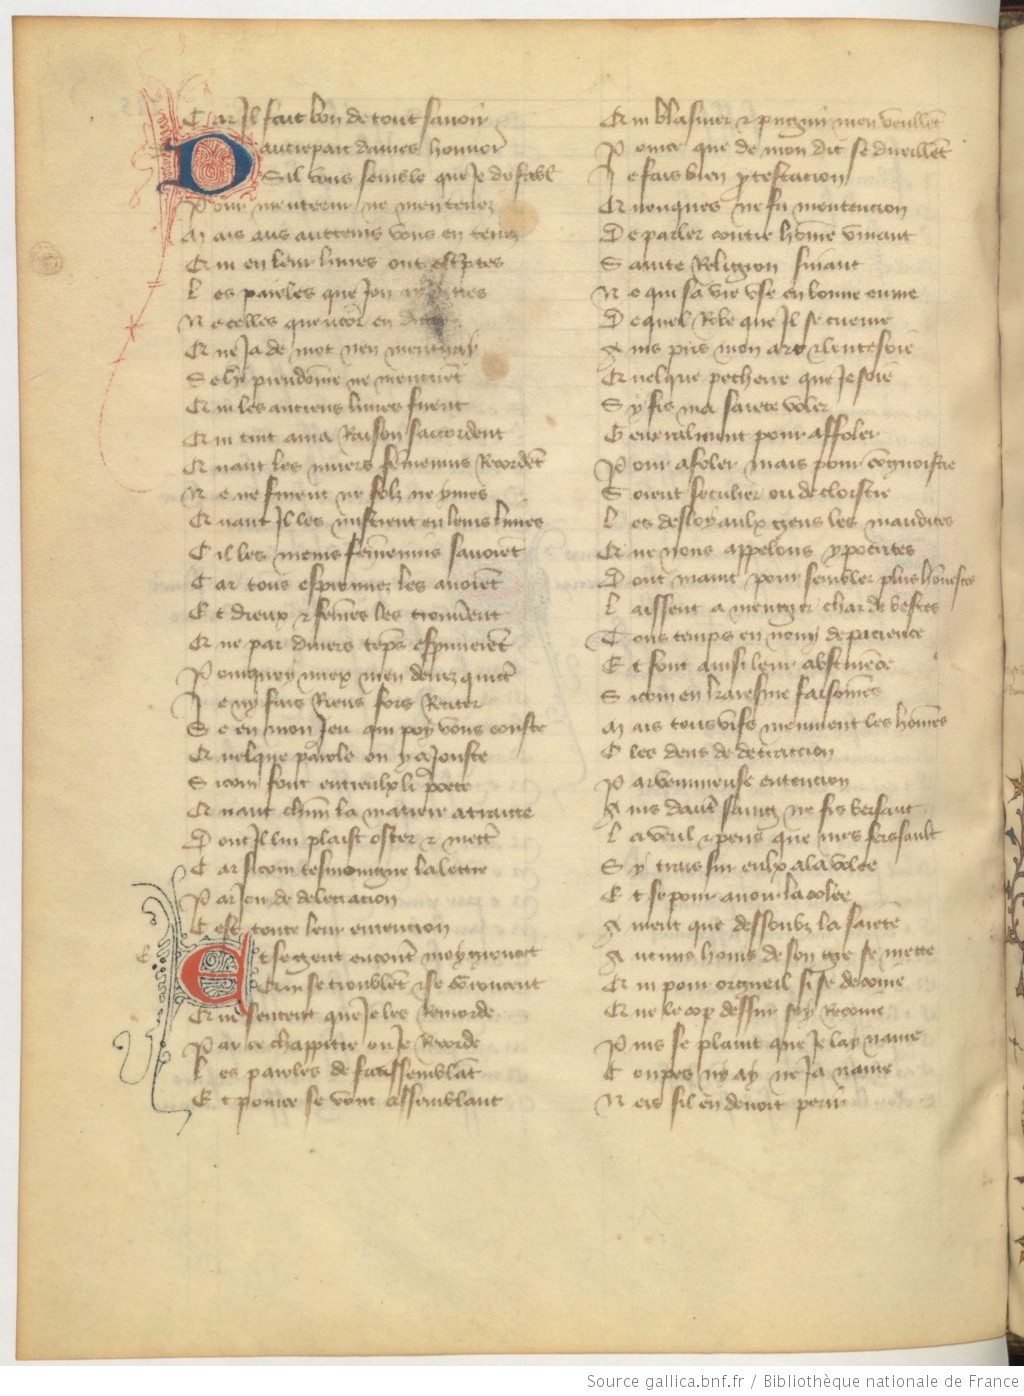 C ar Il fait bon de tout savoir
D autrepart dames honnor
S il vous semble que je di fabl
P our menteur ne men tenez
M ais aus aucteurs vous en tenez
Q ui en leur livres ont escriptes
L es paroles que jen ay dictes
N e celles quencor en
Q ue Ja de mot nen mentiray
S e ly preudome ne mentirent
Q ui les anciens livres firent
Q ui tuit a ma Raison saccordent
Q uant les meurs femenins Recordent
N e ne furent ne folz ne yvres
Q uant Il les mistrent en leurs livres
C il les meurs femenins savoient
C ar tous esprouvez les avoient
E t tieulx es femes les trouverent
Q ue par divers temps esprouverent
P our quoy miex men devez quictier
J e ny fais Riens fors Reciter
S e en mon Jeu qui poy vous couste
Q uelque parole on y ajouste
S icom font entreulx li poete
Q uant chun la matiere atraitte
D ont Il lui plaist oster et mettre
C ar sicom tesmoingne la lettre
P ar Jeu de delectacion
C est toute leur entencion
E t se gent encontre moy groucent
Q ui se troublent et se courroucent
Q ue sentent que Je les Remorde
P ar ce chappitre ou Je Recorde
L es paroles de faussemblant
E t pource se vont assemblant
Q ui blasmer et pugnir men veullent
P ource que de mon dit se dueillent
J e fais bien protestacion
Q uonques ne fu mentencion
D e parler contre home vivant
S ainte Religion sivant
N e qui sa vie use en bonne euvre
D e quel Robe que Il se cueuvre
A ins pris mon arc et lentesoie
Q uelque pecherre que Je soie
S y fis ma saiete voler
G eneralment pour affoler
P our afoler mais pour congnoistre
S oient seculier ou de cloistre
L es desloyaulx gens les maudites
Q ue nous appelons ypocrites
D ont maint pour sembler plus honestes
L aissent a mengier char de bestes
T ous temps en nom de pacience
E t font ainsi leur abstinence
S icom en karesme faisomes
M ais tous vifs menuient les homes
O les dens de detraccion
P ar venimeuse entencion
A ins dautre saing ne fis bersaut
L a veul et pens que mes fers sault
S y trais sur eulx a la volee
E t se pour avoir la colee
A vient que dessoubz la saiete
A ucuns homs de son gre se mette
Q ui pour orgueil si se decoive
Q ue le cop dessur soy Recoive
P uis se plaint que Je lay navre
C oupes ny ay ne Ja navre
N eis sil en devoit perir